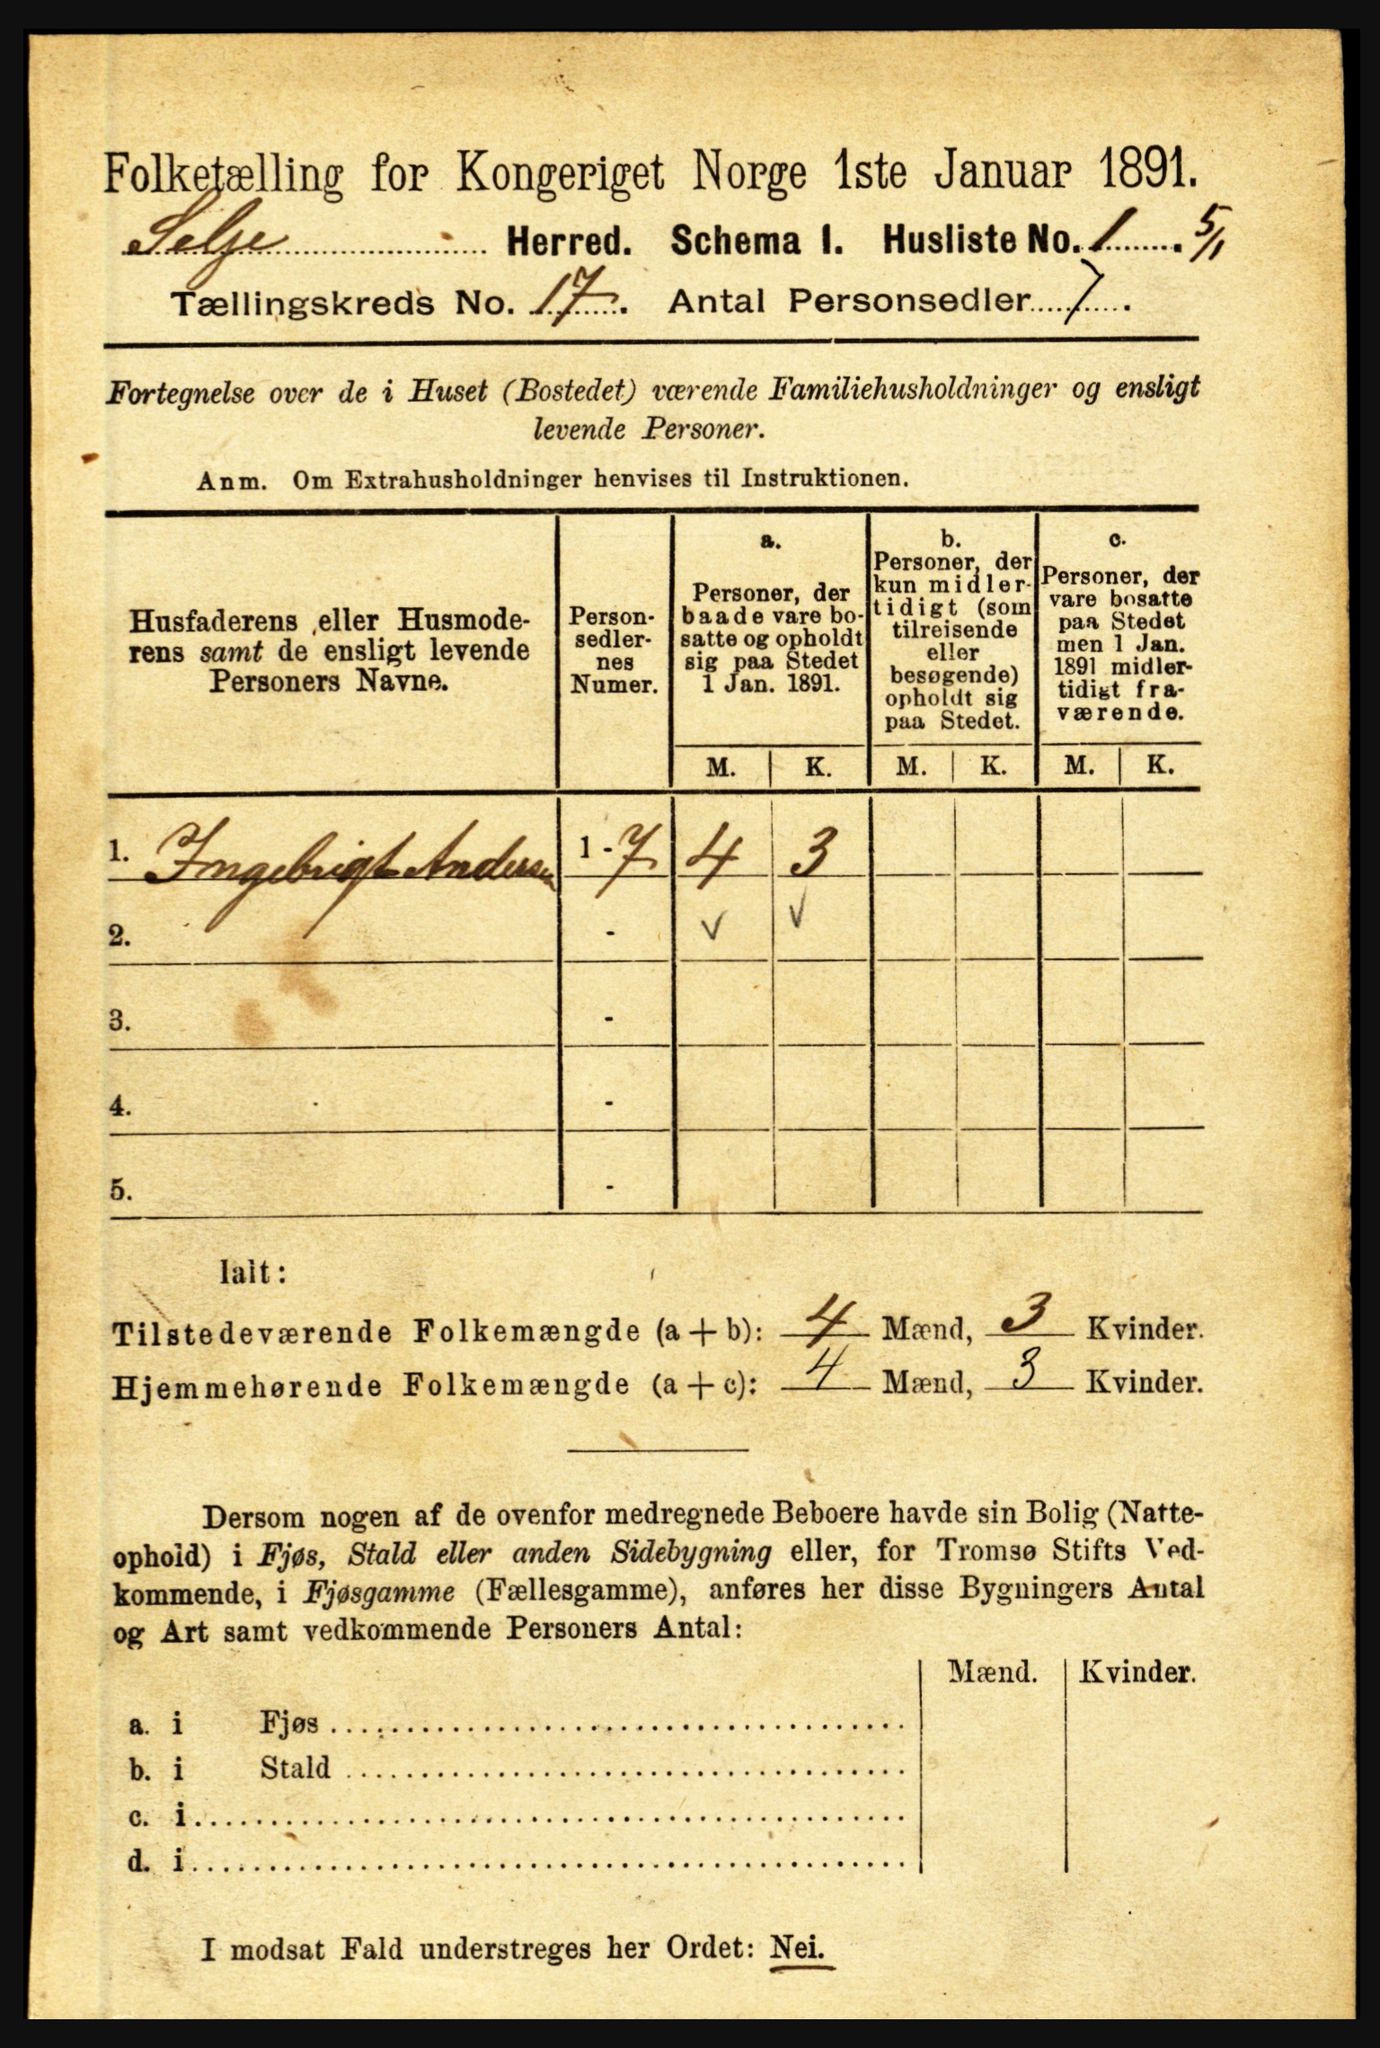 Folketælling for Kongeriget Norge 1ste Januar 1891.
Selje Herred. Schema I. Husliste No. 1. 5/1
Tællingskreds No. 17. Antal Personsedler 7.
Fortegnelse over de i Huset (Bostedet) værende Familiehusholdninger og ensligt
levende Personer.
Anm. Om Extrahusholdninger henvises til Instruktionen.
Husfaderens eller Husmode-
rens samt de ensligt levende
Personers Navne.
Person-
sedler-
nes
Numer.
a.
Personer, der
baade vare bo-
satte og opholdt
sig paa Stedet
1 Jan. 1891.
b.
Personer, der
kun midler-
tidigt (som
tilreisende
eller
besøgende)
opholdt sig
paa Stedet.
c.
Personer, der
vare bosatte
paa Stedet
men 1 Jan.
1891 midler-
tidigt fra-
værende.
M. K. M. K. M. K.
1. Ingebrigt Andersen 1-7 4 3
2. - v v
3. -
4. -
5. -
Ialt:
Tilstedeværende Folkemængde (a + b): 4 Mænd, 3 Kvinder.
Hjemmehørende Folkemængde (a + c): 4 Mænd, 3 Kvinder.
Dersom nogen af de ovenfor medregnede Beboere havde sin Bolig (Natte-
ophold) i Fjøs, Stald eller anden Sidebygning eller, for Tromsø Stifts Ved-
kommende, i Fjøsgamme (Fællesgamme), anføres her disse Bygningers Antal
og Art samt vedkommende Personers Antal:
Mænd. Kvinder.
a. i Fjøs
b. i Stald
c. i
d. i
I modsat Fald understreges her Ordet: Nei.